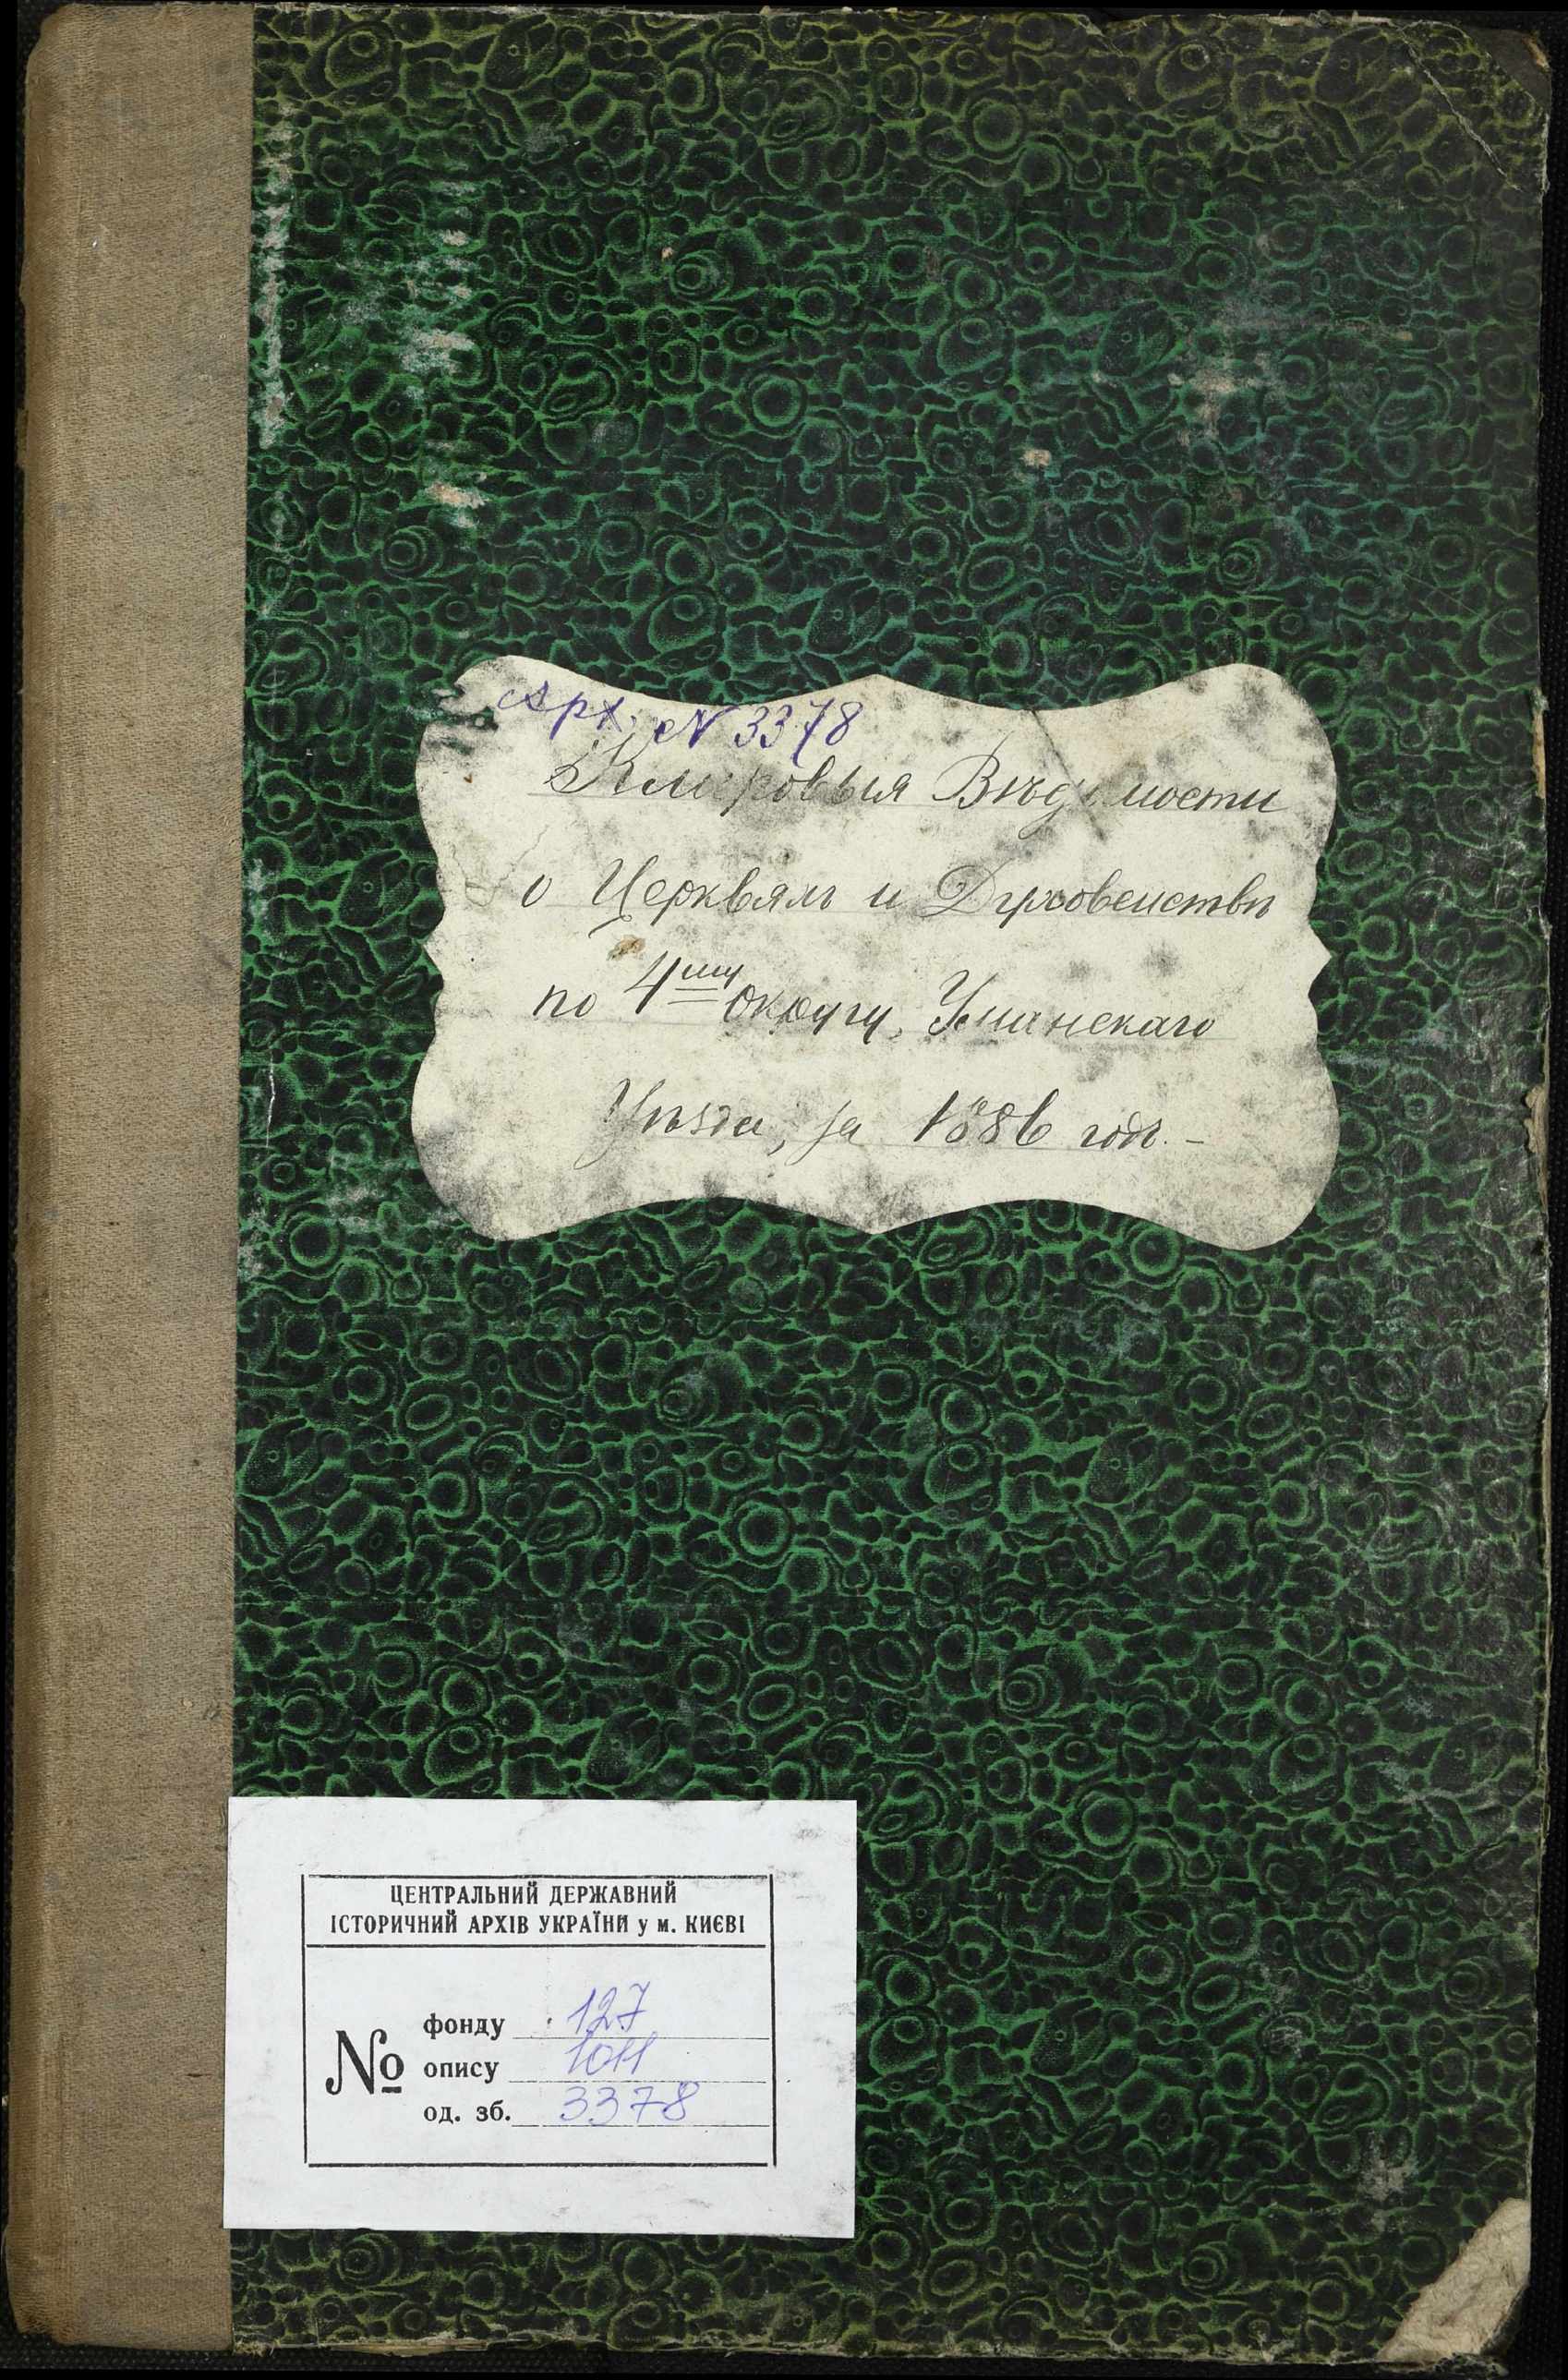 Арх. № 3378
Клировыя Вѣдомости
о Церквяхъ и Духовенствѣ
по 4му округу, Уманскаго
Уѣзда, за 1886 годъ. -
ЦЕНТРАЛЬНИЙ ДЕРЖАВНИЙ
ІСТОРИЧНИЙ АРХІВ УКРАЇНИ у м. КИЄВІ
№
фонду 127
опису 1011
од. зб. 3378